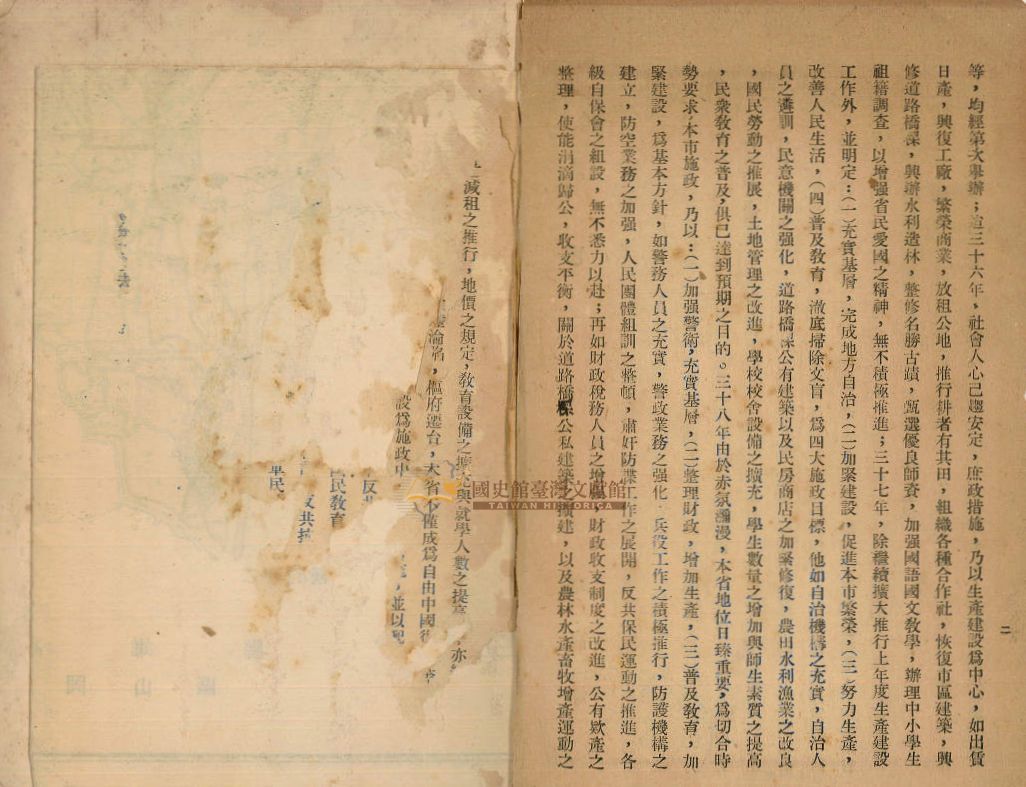 二
等，均經第次舉辦；迨三十六年，社會人心己趨安定，庶政措施，乃以生產建設爲中心，如出賃
日產，興復工廠，繁榮商業，放租公地，推行耕者有其田，組織各種合作社，恢復市區建築，興
修道路橋樑，興辦水利造林，整修名勝古蹟，甄選優良師資，加强國語國文敎學，辦理中小學生
祖籍調查，以增强省民愛國之精神，無不積極推進；三十七年，除繼續擴大推行上年度生產建設
工作外，並明定：(一)充實基層，完成地方自治，(二)加緊建設，促進本市繁榮，(三)努力生產，
改善人民生活，(四)普及敎育，澈底掃除文盲，爲四大施政目標，他如自治機構之充實，自治人
員之遴訓，民意機關之强化，道路橋樑公有建築以及民房商店之加緊修復，農田水利漁業之改良
，國民勞動之推展，土地管理之改進，學校校舍設備之擴充，學生數量之增加與師生素質之提高
，民衆敎育之普及，俱已達到預期之目的。三十八年由於赤氛瀰漫，本省地位日臻重要，爲切合時
勢要求，本市施政，乃以：(一)加强警衛，充實基層，(二)整理財政，增加生產，(三)普及敎育，加
緊建設，爲基本方針，如警務人員之充實，警政業務之强化，兵役工作之積極推行，防護機構之
建立，防空業務之加强，人民團體組訓之整頓，肅奸防諜工作之展開，反共保民運動之推進，各
級自保會之組設，無不悉力以赴；再如財政稅務人員之增强，財政收支制度之改進，公有欵產之
整理，使能涓滴歸公，收支平衡，關於道路橋樑公私建築之擴建，以及農林水產畜牧增產運動之
減租之推行，地價之規定，敎育設備之擴充與就學人數之提高，亦
淪陷，樞府遷台，本省不僅成爲自由中國復
設爲施政中 ，並以配
反共
民敎育
反共抗
里民
國史館臺灣文獻館
TAIWAN HISTORICA
岡
山